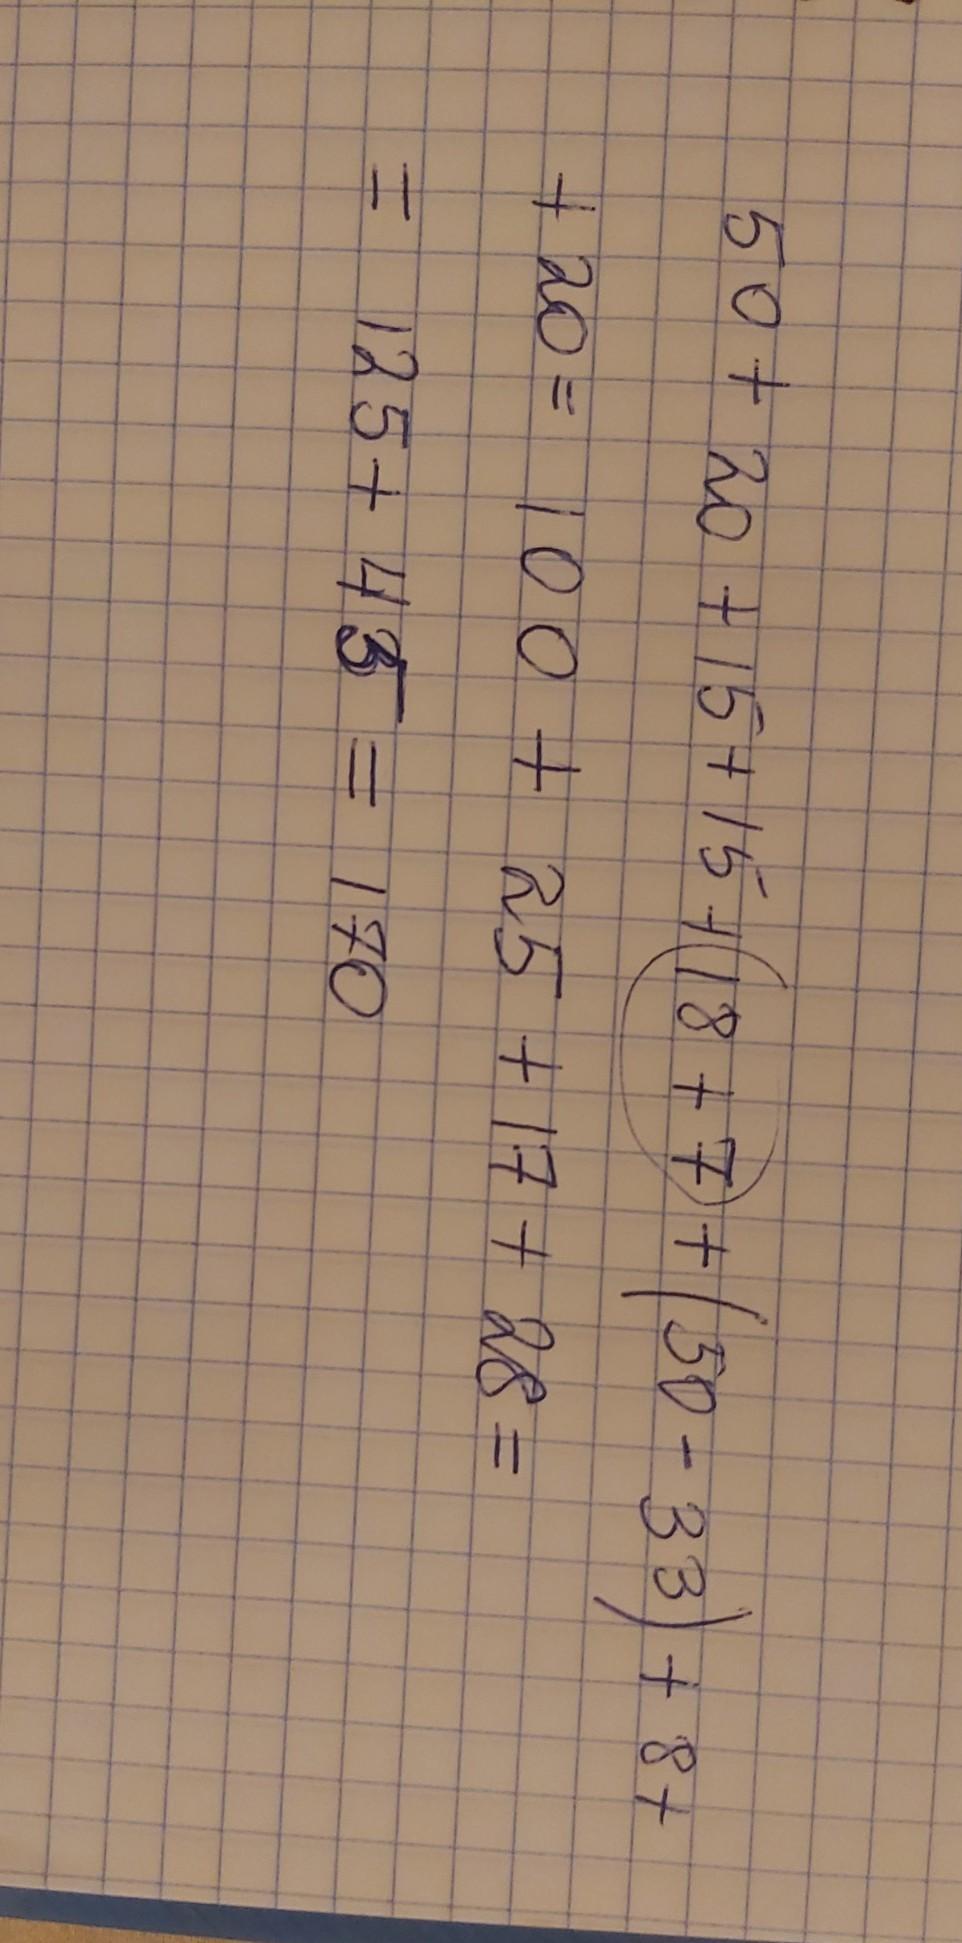 50 + 20 + 15 + 15 + (18 + 7) + (50 - 33) + 8 +
+ 20 = 100 + 25 + 17 + 28 =
= 125 + 45 = 170